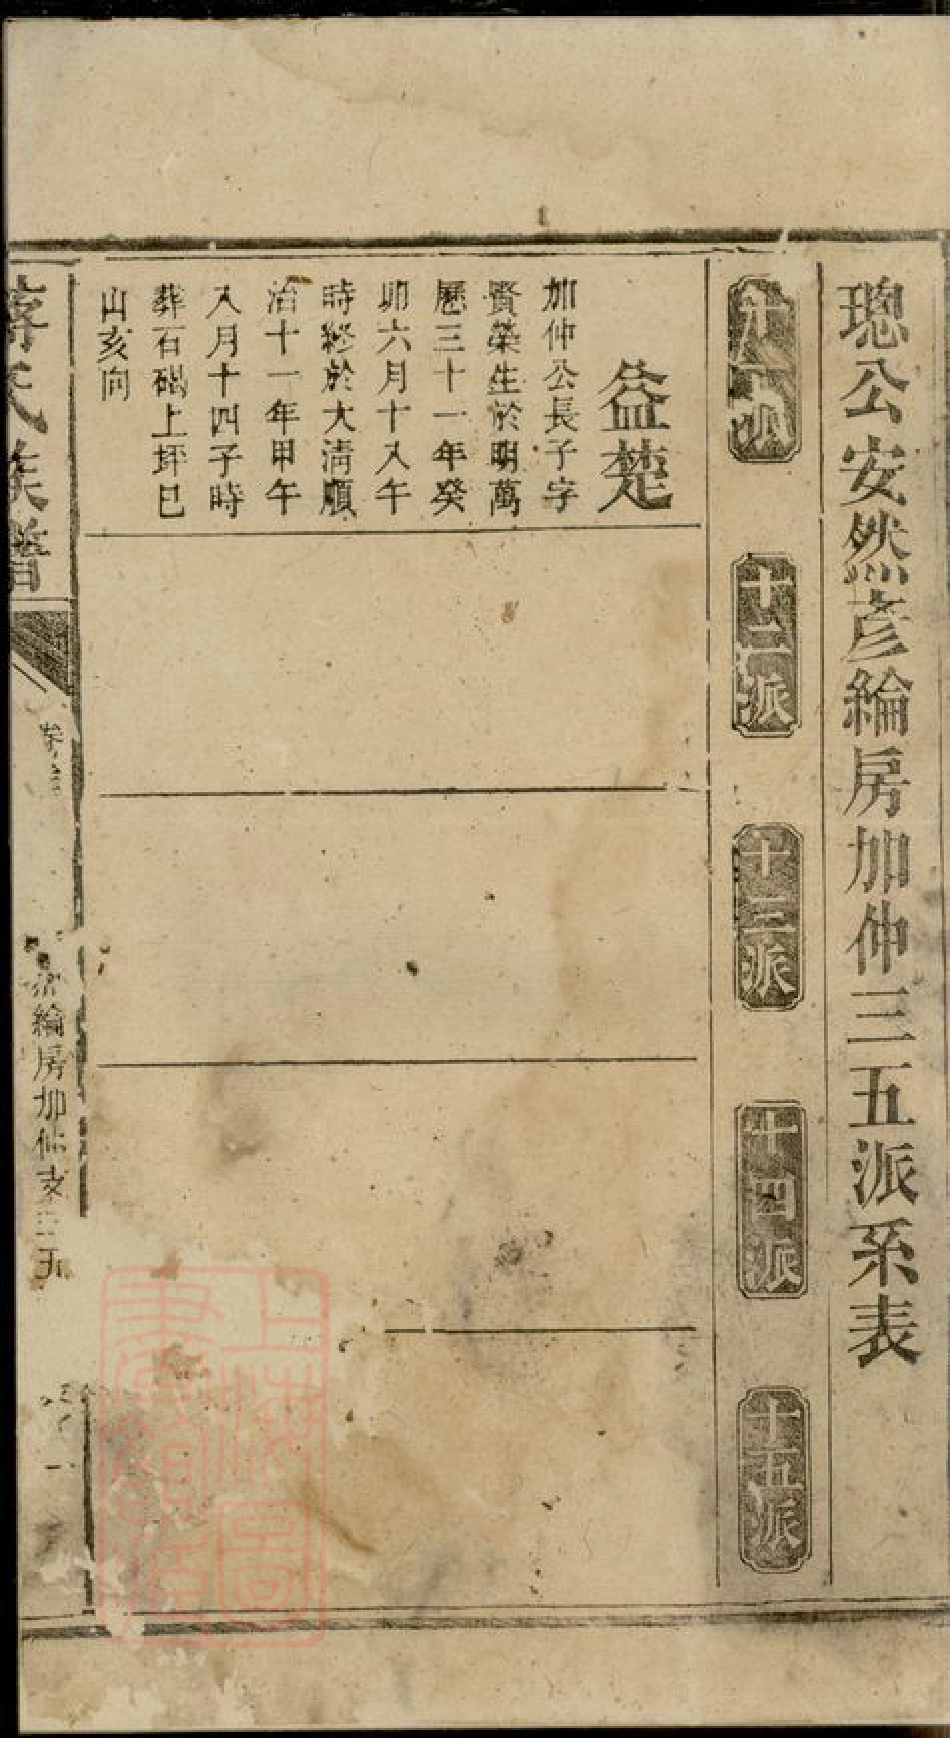 璁公安然彥綸房加仲三五派系表
十一派
十二派
十三派
十四派
十五派
益楚
加仲公長子字
賢榮生於明萬
曆三十一年癸
卯六月十八午
時終於大清順
治十一年甲午
八月十四子時
葬石碣上坪巳
山亥向
氏族譜
綸房加仲支三五
上海圖
書館藏